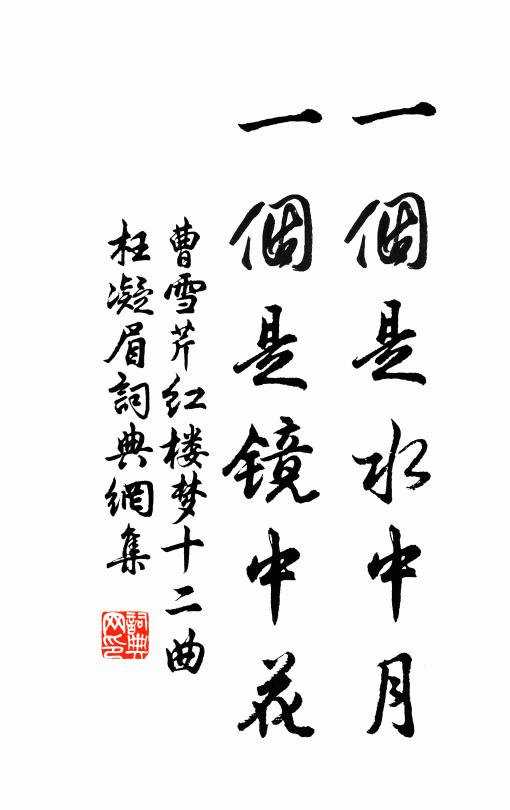 一個是水中月
一個是鏡中花
曹雪芹红楼梦十二曲
枉凝眉詞典網集
詞典网印